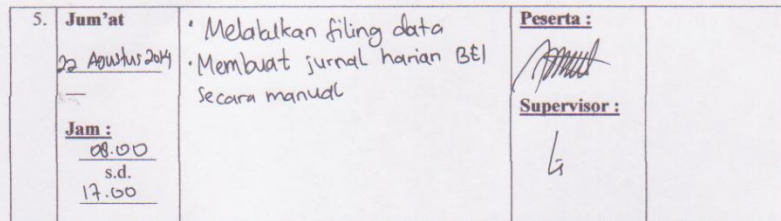 5.
Jum'at
22 Agustus 2014
Jam :
08.00
s.d.
17.00
• Melakukan filing data
• Membuat jurnal harian BEI
secara manual
Peserta :
Supervisor :